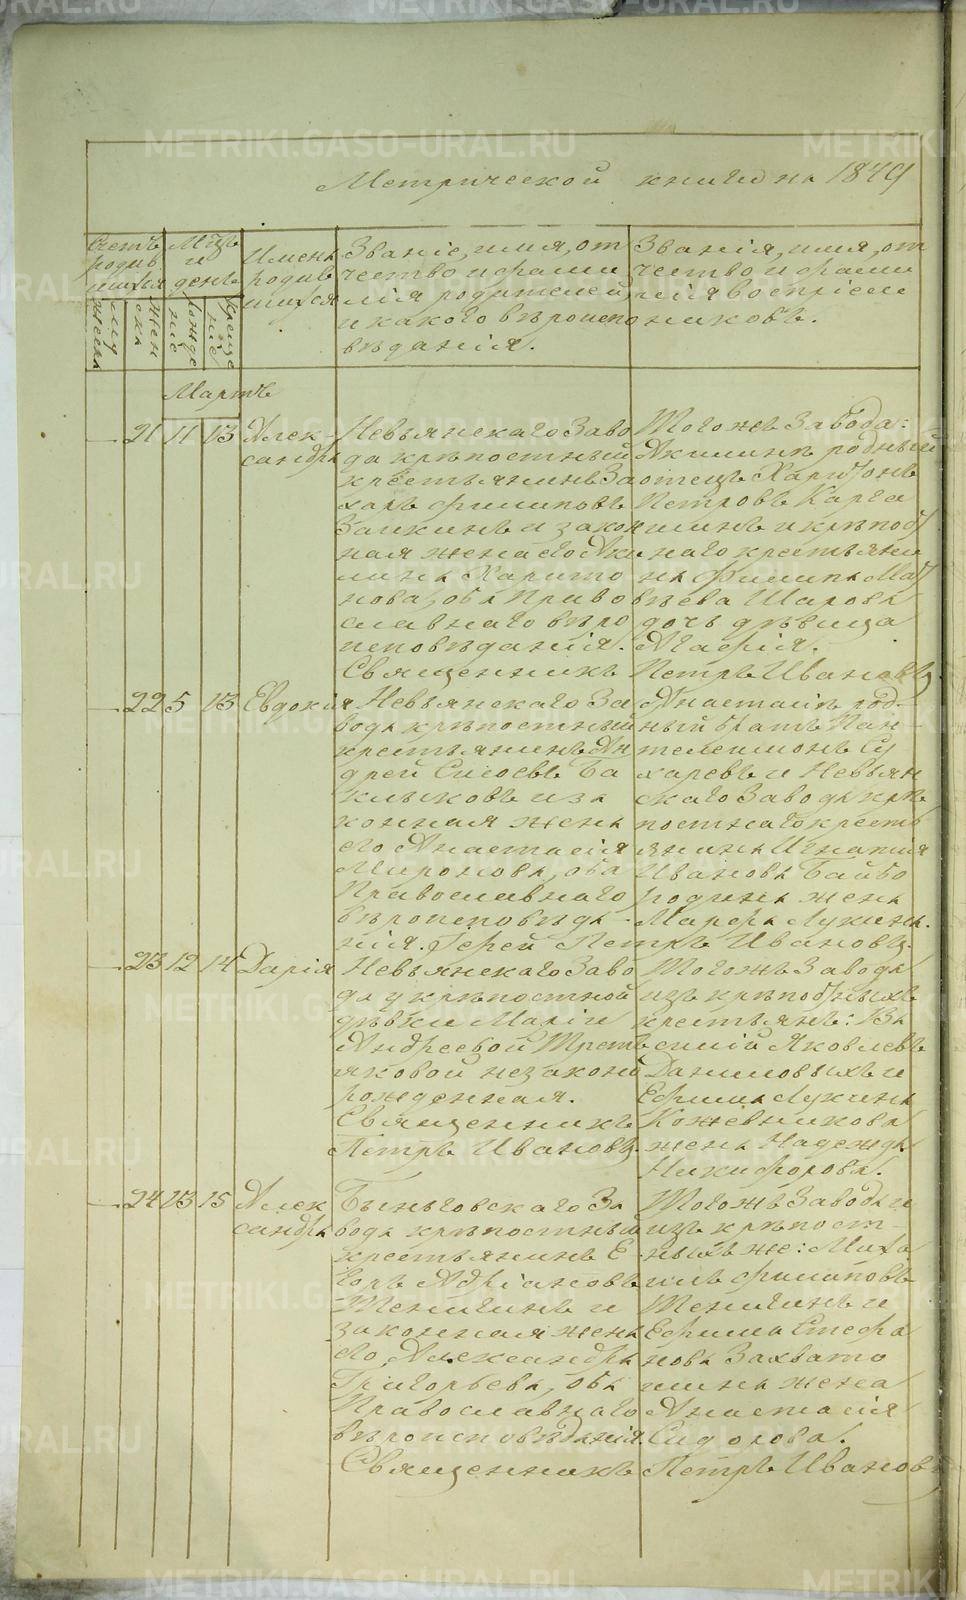 Метрической книги на 1849
Счетъ родив шихся
Мцъ и день
Имена родив шихся
Званіе, имя, от чество и фами лія родителей, и какого вѣроиспо вѣданія.
Званія, имя, от чество и фами лія воспріем никовъ.
муж еска
жен ска
рожде ніе
креще ніе
Мартъ
21 11 13 Алек сандра
Невьянскаго Заво
да крѣпостный
крестьянинъ За
харъ Филиповъ
Заикинъ и закон
ная жена его Аки
лина Харито
нова, оба Право
славнаго вѣро
исповѣданія.
Того жъ Завода:
Акилинѣ родный
отецъ Харитонъ
Петровъ Карга
шинъ и крѣпост
наго крестьяни
на Филипа Мат
вѣева Шарова
дочь дѣвица
Агафія.
Священникъ Петръ Ивановъ
22 5 13 Евдокія
Невьянскаго За
вода крѣпостный
крестьянинъ Ан
дрей Сисоевъ Ба
клыковъ и за
конная жена
его Анастасія
Миронова, оба
Православнаго
вѣроисповѣда
нія.
Анастасіи род
ный братъ Пан
телеимонъ Су
харевъ и Невьян
скаго Завода крѣ
постнаго кресть
янина Игнатія
Иванова Байбо
родина жена
Марфа Лукина.
Іерей Петръ Ивановъ.
23 12 14 Дарія
Невьянскаго Заво
да у крѣпостной
дѣвки Маріи
Андреевой Треть
яковой незаконо
рожденная.
Священникъ
Петръ Ивановъ.
Того жъ Завода
изъ крѣпостныхъ
крестьянъ: Ва
силій Яковлевъ
Даниловыхъ и
Ефима Лукина
Кожевникова
жена Надежда
Никифорова.
24 13 15 Алек сандра
Быньговскаго За
вода крѣпостный
крестьянинъ Е
горъ Адріановъ
Теншинъ и
законная жена
его, Александра
Григорьева, оба
Православнаго
вѣроисповѣданія.
Того жъ Завода и
изъ крѣпост
ныхъ же: Миха
илъ Филиповъ
Теншинъ и
Ефима Стефа
нова Захвато
шина жена
Анастасія
Сидорова.
Священникъ Петръ Ивановъ
METRIKI.GASO-URAL.RU